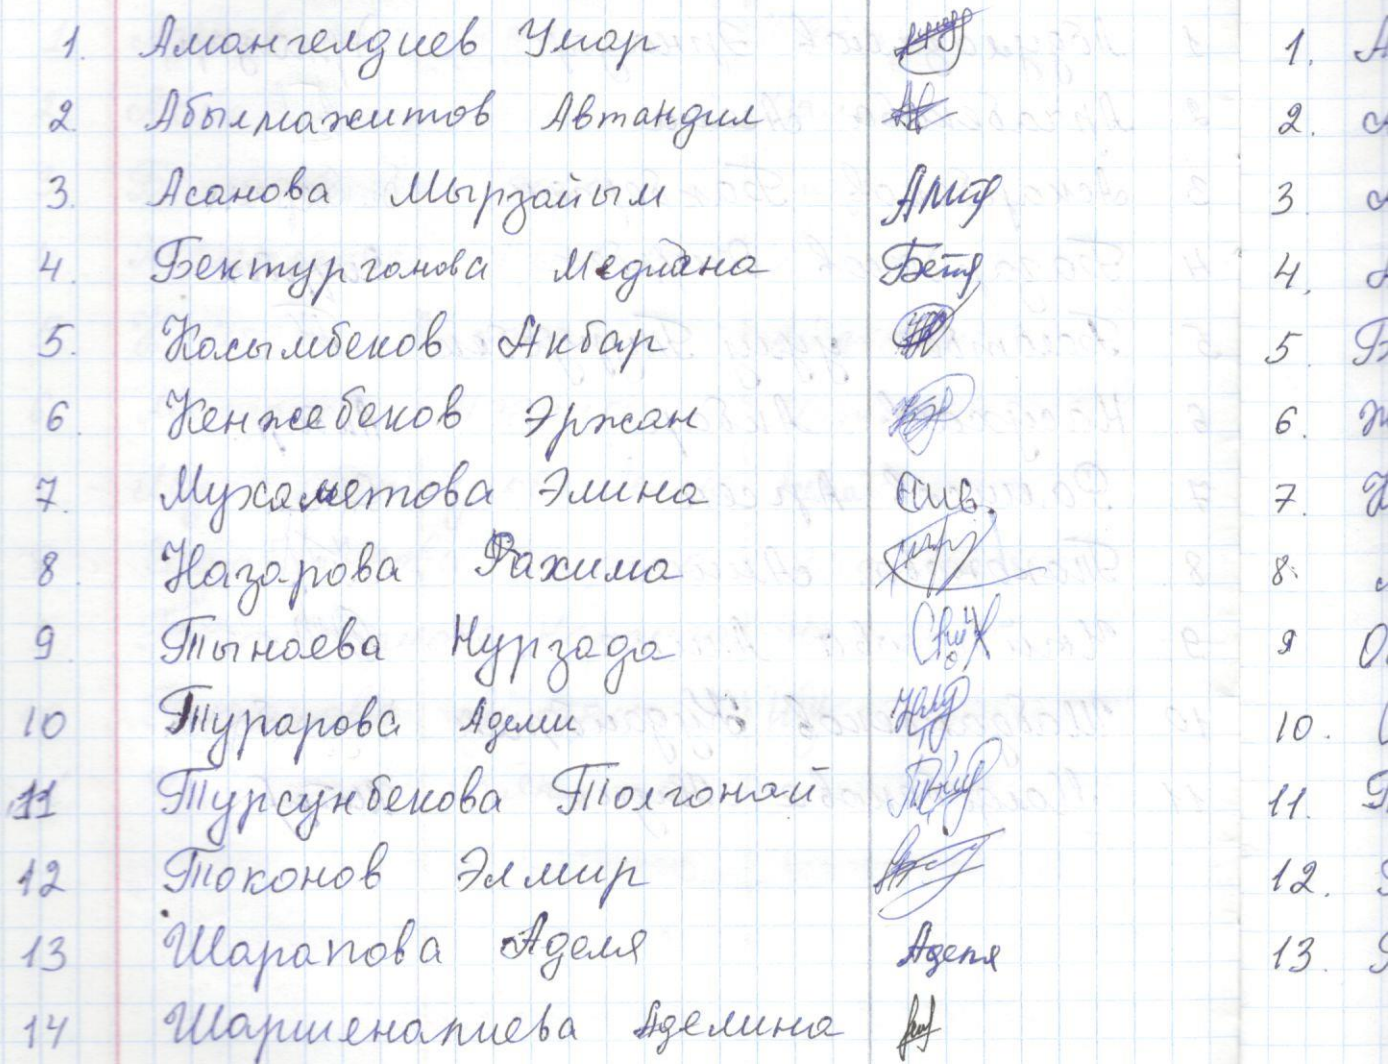 1. Амангелдиев Умар
2. Абылмажитов Автандил
3. Асанова Мырзайым
4. Бектурганова Медиана
5. Касымбеков Акбар
6. Кенжебеков Эржан
7. Мухаметова Элина
8. Назарова Рахима
9. Тынаева Нурзада
10 Турарова Адеми
11 Турсунбекова Толгонай
12 Токонов Элмир
13 Шарапова Аделя Аделя
14 Шаршенапиева Аделина
1.
2.
3
4.
5
6.
7.
8.
9
10.
11.
12.
13.